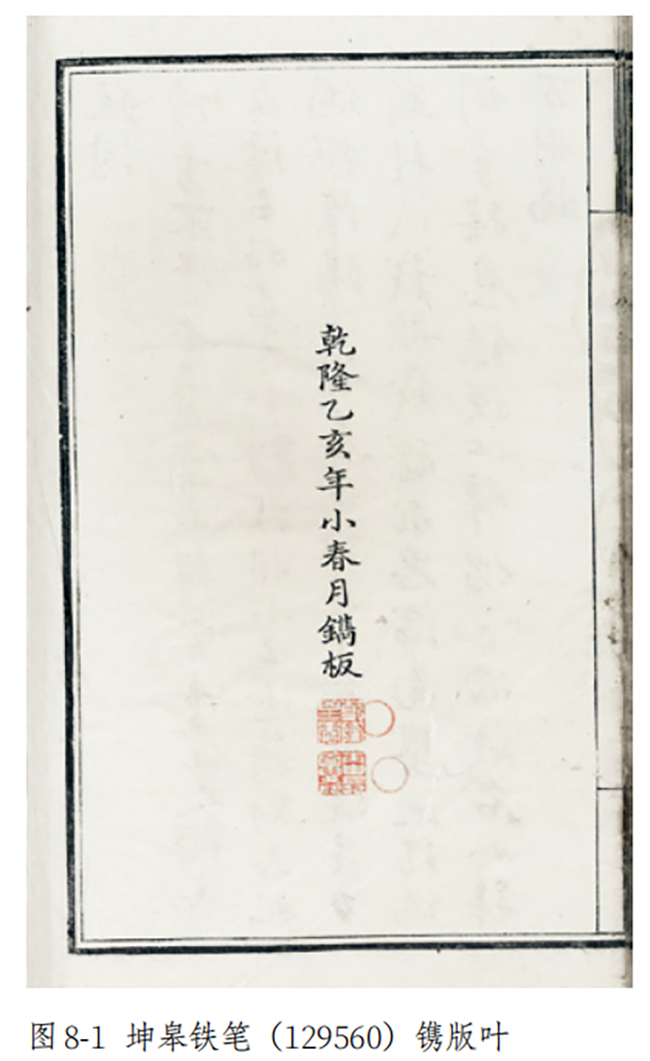 乾隆乙亥年小春月鐫板
图 8-1 坤皋铁笔（129560）镌版叶